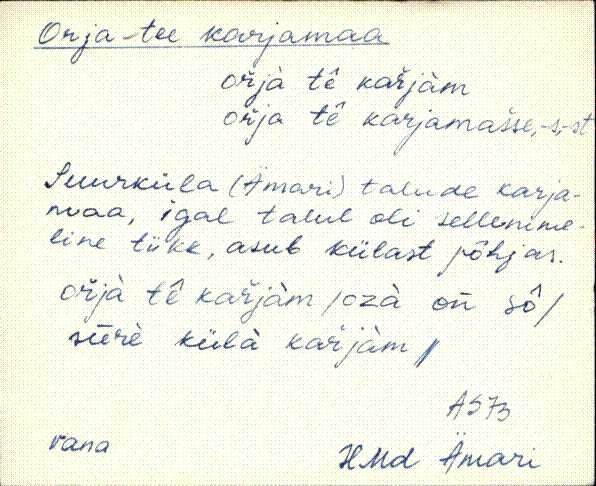 Orja-tee karjamaa
oŕjà tê kaŕjàm
oŕja tê karjamašse, -s, -st
Suurküla (Ämari) talude karja-
maa, igal talul oli sellenime-
line tükk, asub külast põhjas.
oŕjà tê kaŕjàm /ozà oñ sô/
sūrè külà kaŕjàm //
AS73
vana
HMd Ämari